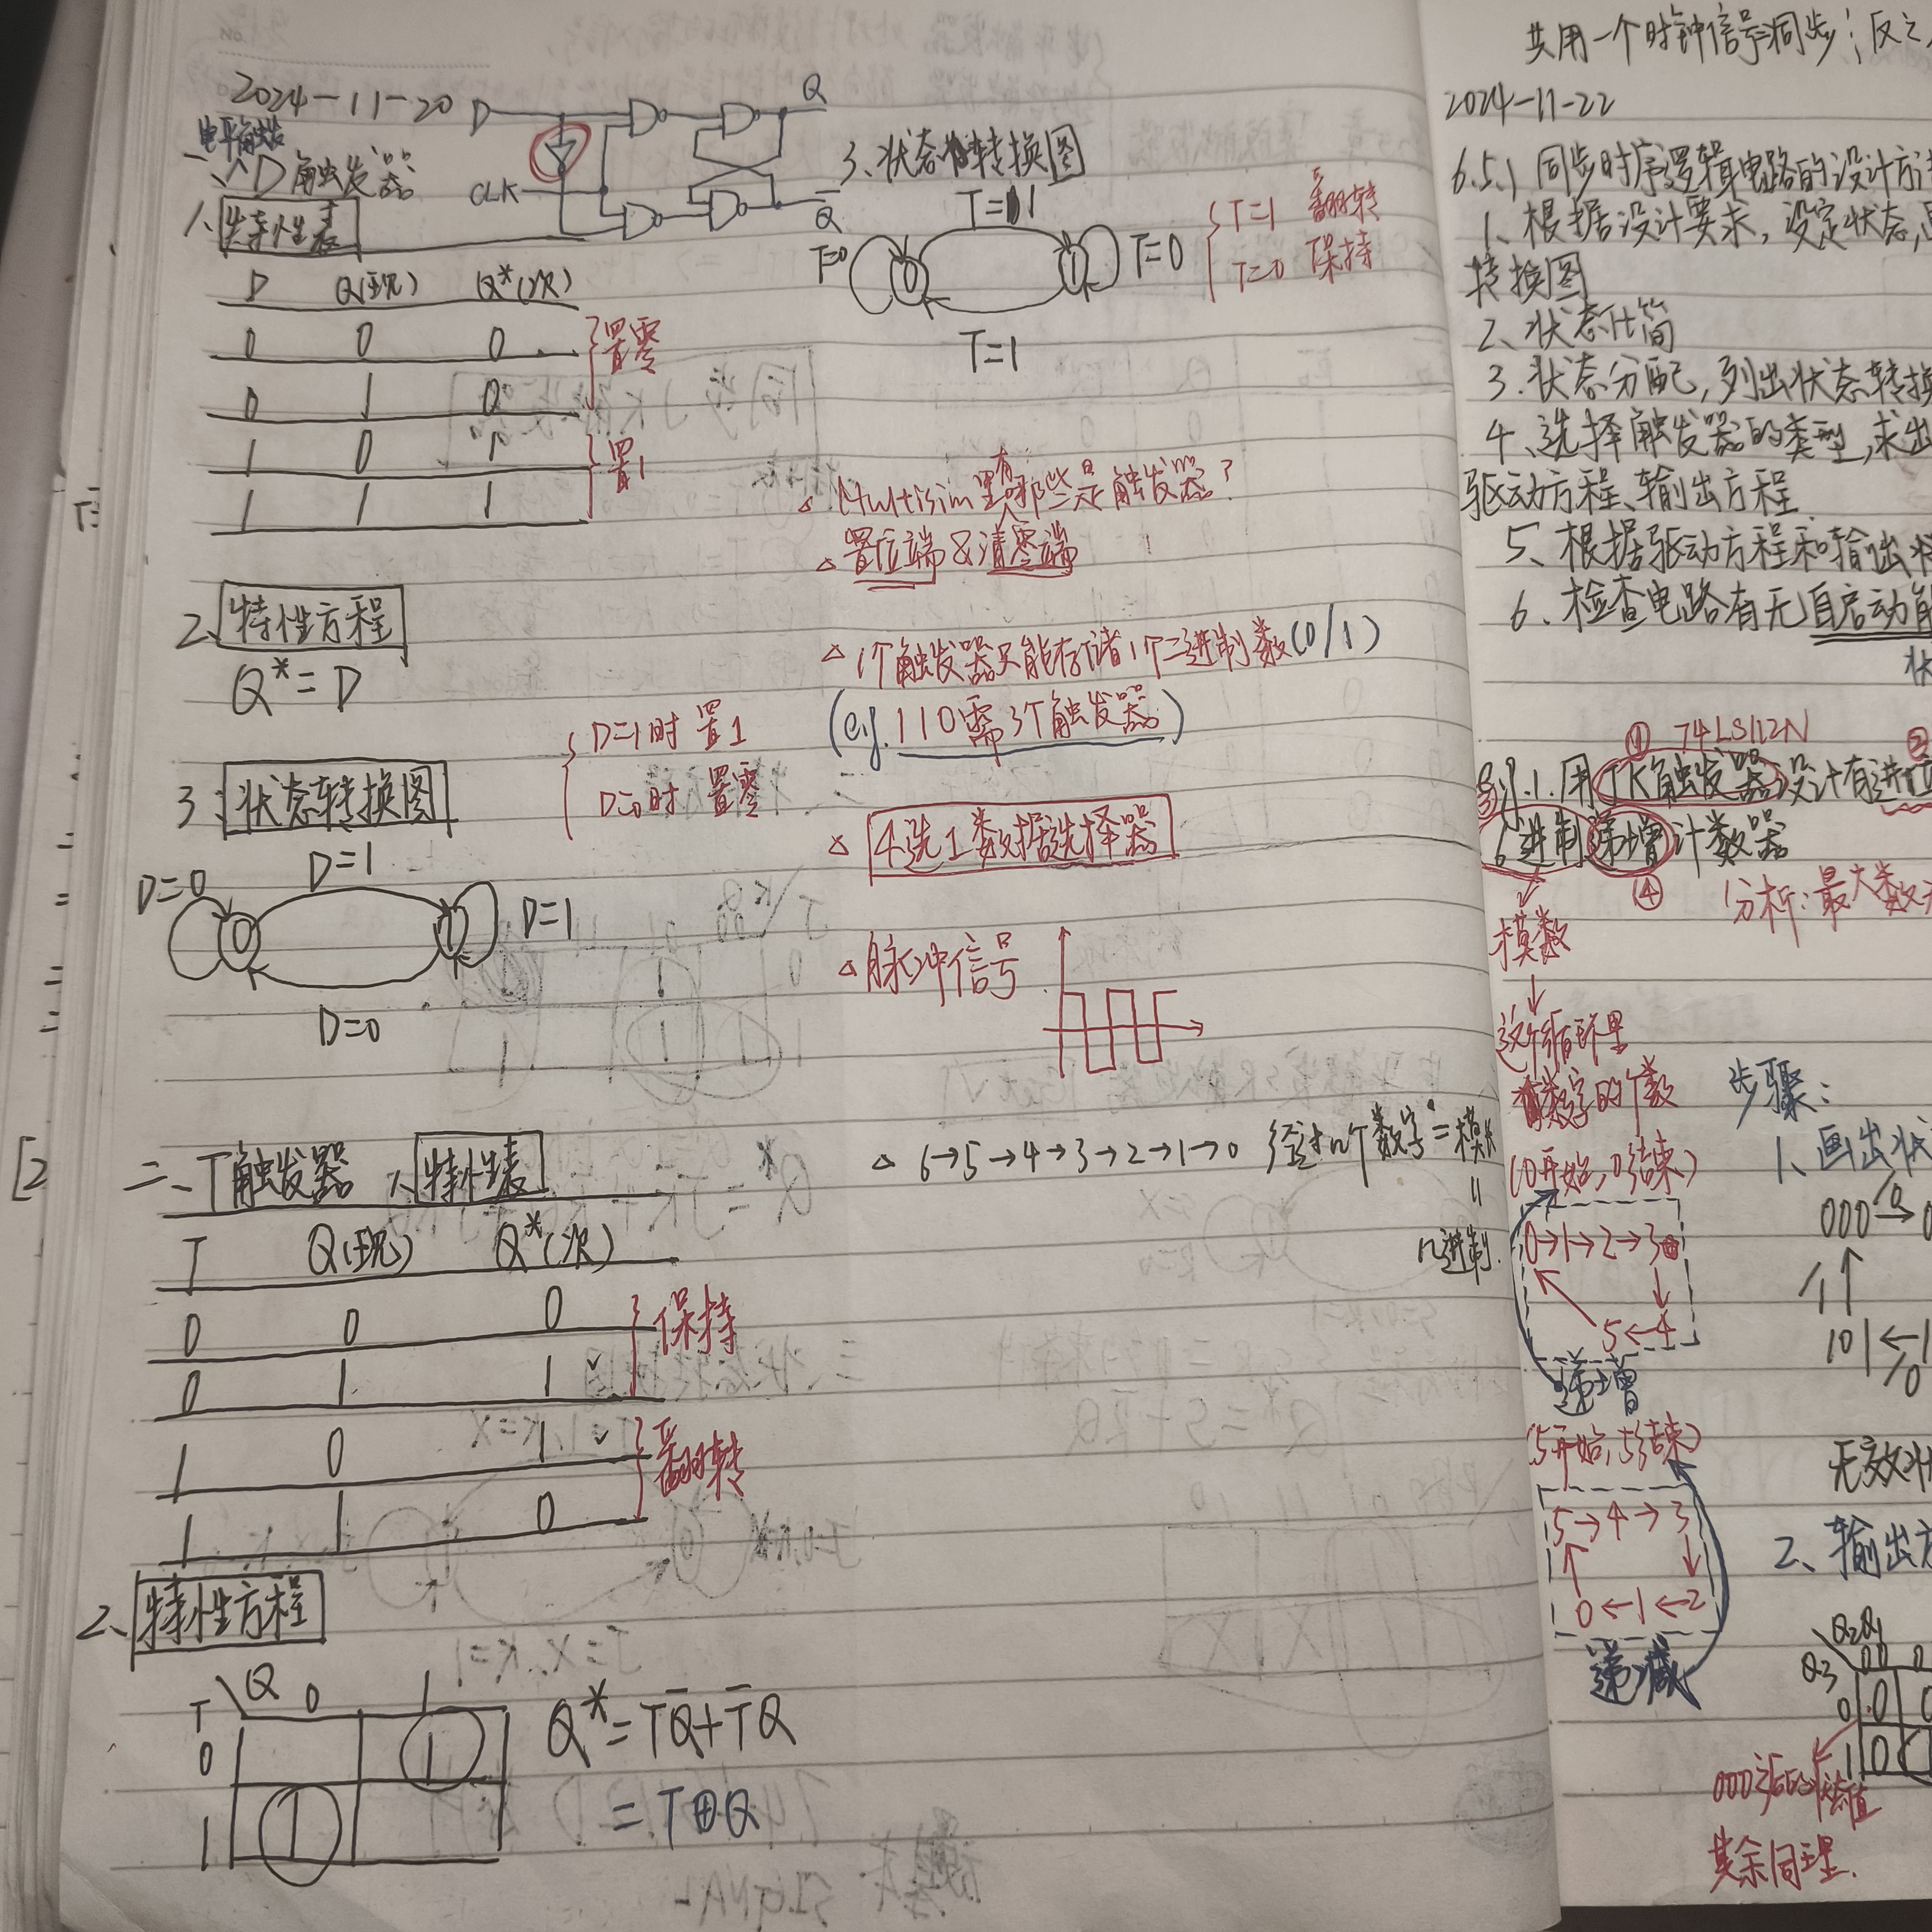 2024-11-20
电平触发
一、D触发器
D
CLK
Q
Q̅
1、特性表
D Q(现) Q*(次)
0 0 0
0 1 0
置零
1 0 1
1 1 1
置1
2、特性方程
Q*=D
3、状态转换图
D=1时 置1
D=0时 置零
D=1
D=0
0
1
D=1
D=0
二、T触发器 1、特性表
T Q(现) Q*(次)
0 0 0
0 1 1
保持
1 0 1
1 1 0
翻转
2、特性方程
T Q 0 1
0 1
1 1
Q*=TQ̅+T̅Q
=T⊕Q
3、状态转换图
T=1
T=0
0
1
T=0
T=1
T=1 翻转
T=0 保持
△ Multisim里有哪些是触发器?
△ 置位端&清零端
△ 1个触发器只能存储1个二进制数(0/1)
(eg.110需3个触发器)
△ 4选1数据选择器
△ 脉冲信号
△ 6→5→4→3→2→1→0 经过n个数字=模
n进制
共用一个时钟信号:同步;反之
2024-11-22
6.5.1 同步时序逻辑电路的设计方
1、根据设计要求,设定状态,
转换图
2、状态化简
3.状态分配,列出状态转换
4、选择触发器的类型,求出
驱动方程、输出方程
5、根据驱动方程和输出
6、检查电路有无自启动能
状
① 74LS112N ②
例.1.用JK触发器设计有进位
③
6进制递增计数器
④
分析:最大数
模数
这个循环里
数字的个数
(0开始,0结束)
0→1→2→3
5←4
递增
(5开始,5结束)
5→4→3
0←1←2
递减
步骤:
1、画出状
000 /0→
/1↑
101←
/0
无效状
2、输出方
Q2Q1
Q3 00
0 0
1 0
000
其余同理.